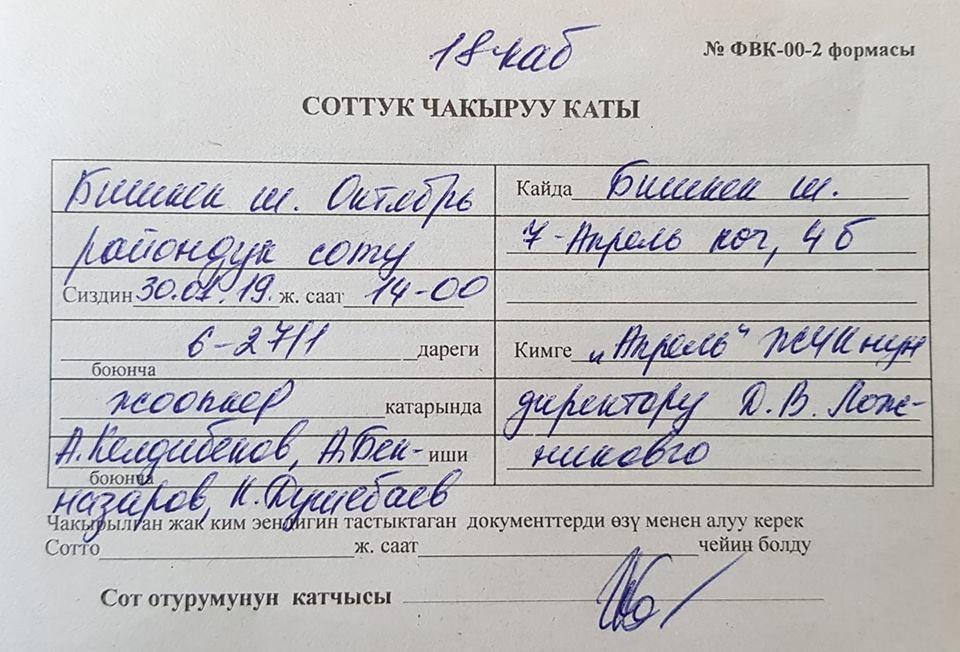 18 каб
№ ФВК-00-2 формасы
СОТТУК ЧАКЫРУУ КАТЫ
Бишкек ш. Октябрь
райондук соту
Сиздин 30.01.19. ж. саат 14-00
6-27/1 дареги
боюнча
жоопкер катарында
А.Келдибеков, А.Бек- иши
боюнча
назаров, К.Душебаев
Кайда Бишкек ш.
7-Апрель көч, 4б
Кимге "Апрель" ЖЧКнун
директору Д.В. Лож-
никовго
Чакырылган жак ким экендигин тастыктаган документтерди өзү менен алуу керек
Сотто ж. саат чейин болду
Сот отурумунун катчысы